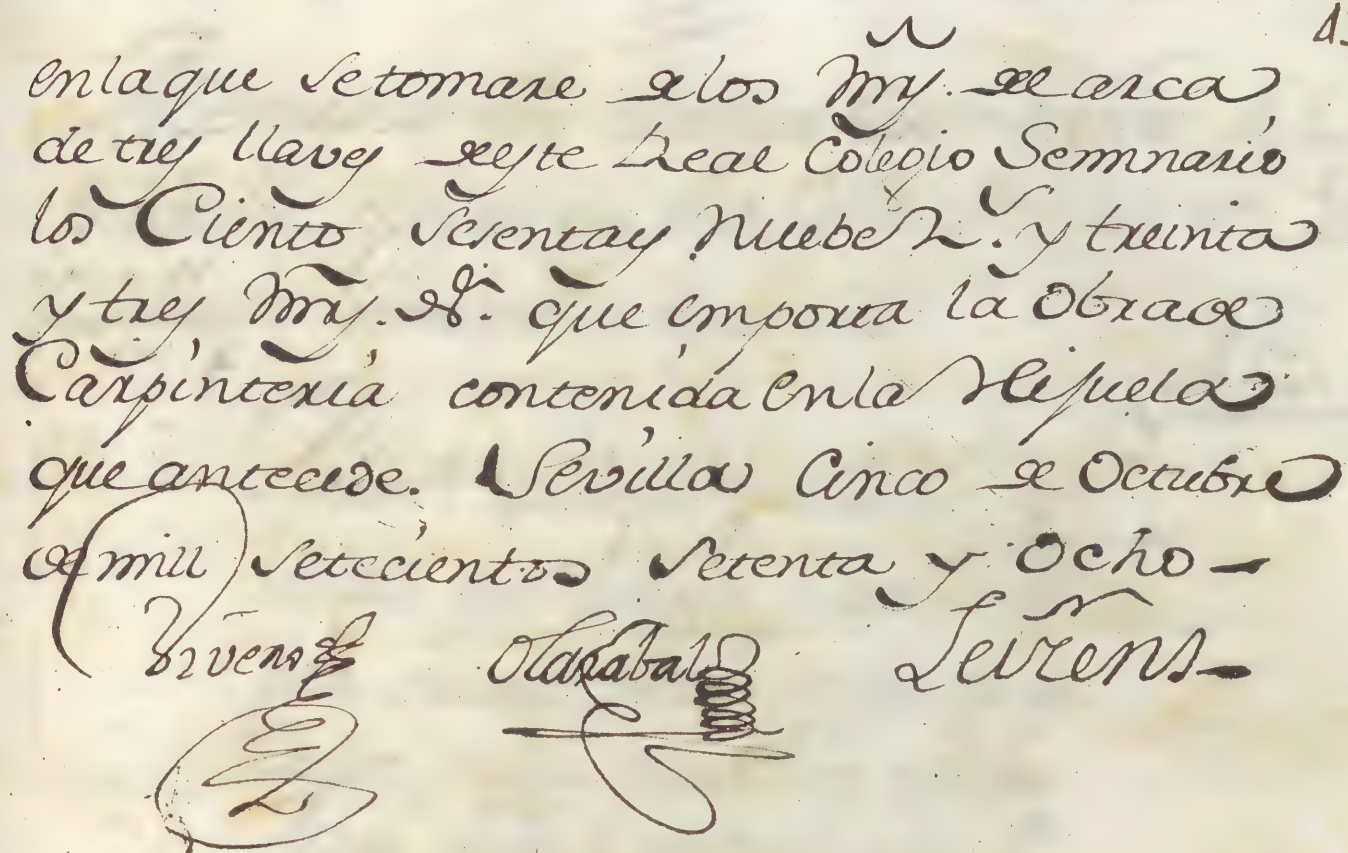 en la que se tomare de los Mrs. del arca
de tres llaves de este Real Colegio Seminario
los Ciento sesenta y Nuebe Rs. y treinta
y tres Mrs. Vn. que importa la Obra de
Carpinteria contenida en la Hijuela
que antecede. Sevilla Cinco de Octubre
de mill setecientos setenta y Ocho
Olazabal